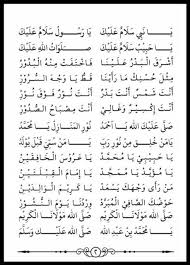 يَا نَبِي سَلَامٌ عَلَيْكَ يَا رَسُولْ سَلَامٌ عَلَيْكَ
يَا حَبِيبْ سَلَامٌ عَلَيْكَ صَلَوَاتُ اللهِ عَلَيْكَ
أَشْرَقَ الْبَدْرُ عَلَيْنَا فَاخْتَفَتْ مِنْهُ الْبُدُورُ
مِثْلَ حُسْنِكَ مَا رَأَيْنَا قَطُّ يَا وَجْهَ السُّرُورِ
أَنْتَ شَمْسٌ أَنْتَ بَدْرٌ أَنْتَ نُورٌ فَوْقَ نُورِ
أَنْتَ إِكْسِيرٌ وَغَالِي أَنْتَ مِصْبَاحُ الصُّدُورِ
صَلَّى اللهُ عَلَيْكَ يَا أَحْمَد نُورِ الْمَنَازِلِ يَا مُحَمَّد
يَا مَنْ خُلِقَ مِنْ نُورِ يَا مَنْ قَبْلَ
يَا حَبِيبِي يَا مُحَمَّد يَا عَرُوسَ الْخَافِقَيْنِ
يَا مُؤَيَّدْ يَا مُمَجَّد يَا إِمَامَ الْقِبْلَتَيْنِ
مَنْ رَأَى وَجْهَكَ يَسْعَدْ يَا كَرِيمَ الْوَالِدَيْنِ
حَوْضُكَ الصَّافِي الْمُبَرَّدْ وِرْدُنَا يَوْمَ النُّشُورِ
صَلَّى اللهُ مَوْلَانَا الْكَرِيمِ صَلَّى اللهُ مَوْلَانَا الْكَرِيمِ
يَا مُحَمَّد بْن عَبْدِ الله صَلَّى اللهُ عَلَيْكَ وَسَلَّم
٢